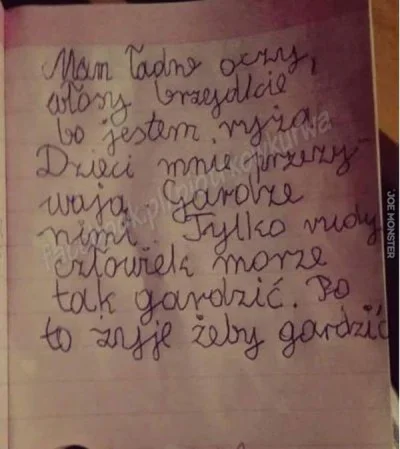 Mam ładne oczy,
włosy brzydkie
bo jestem ryża
Dzieci mnie przezy-
wają. Gardze
nimi. Tylko rudy
człowiek morze
tak gardzić. Bo
to żyje żeby gardzić
JOE MONSTER